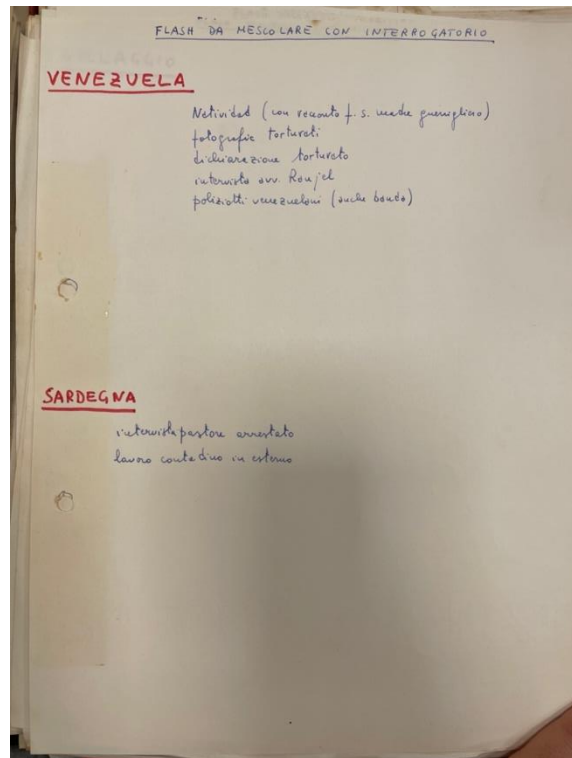 FLASH DA MESCOLARE CON INTERROGATORIO
VENEZUELA
Natividad (con racconto f.s. madre guerrigliero)
fotografie torturati
dichiarazione torturato
intervista avv. Ranjel
poliziotti venezuelani (anche banda)
SARDEGNA
intervista pastore arrestato
lavoro contadino in esterno